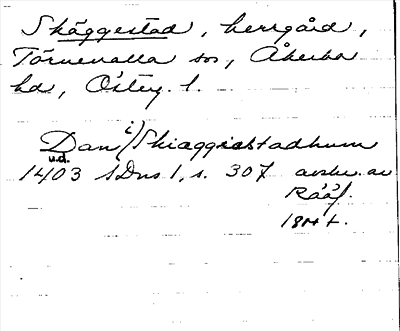 Skäggestad, herrgård,
Törnevalla sn, Åkerbo
hd, Östeg. l.
Dan i/ Skiaggiastadhum
u.d.
1403 SDns 1, s. 307 avskr. av
Rääf.
1800 t.